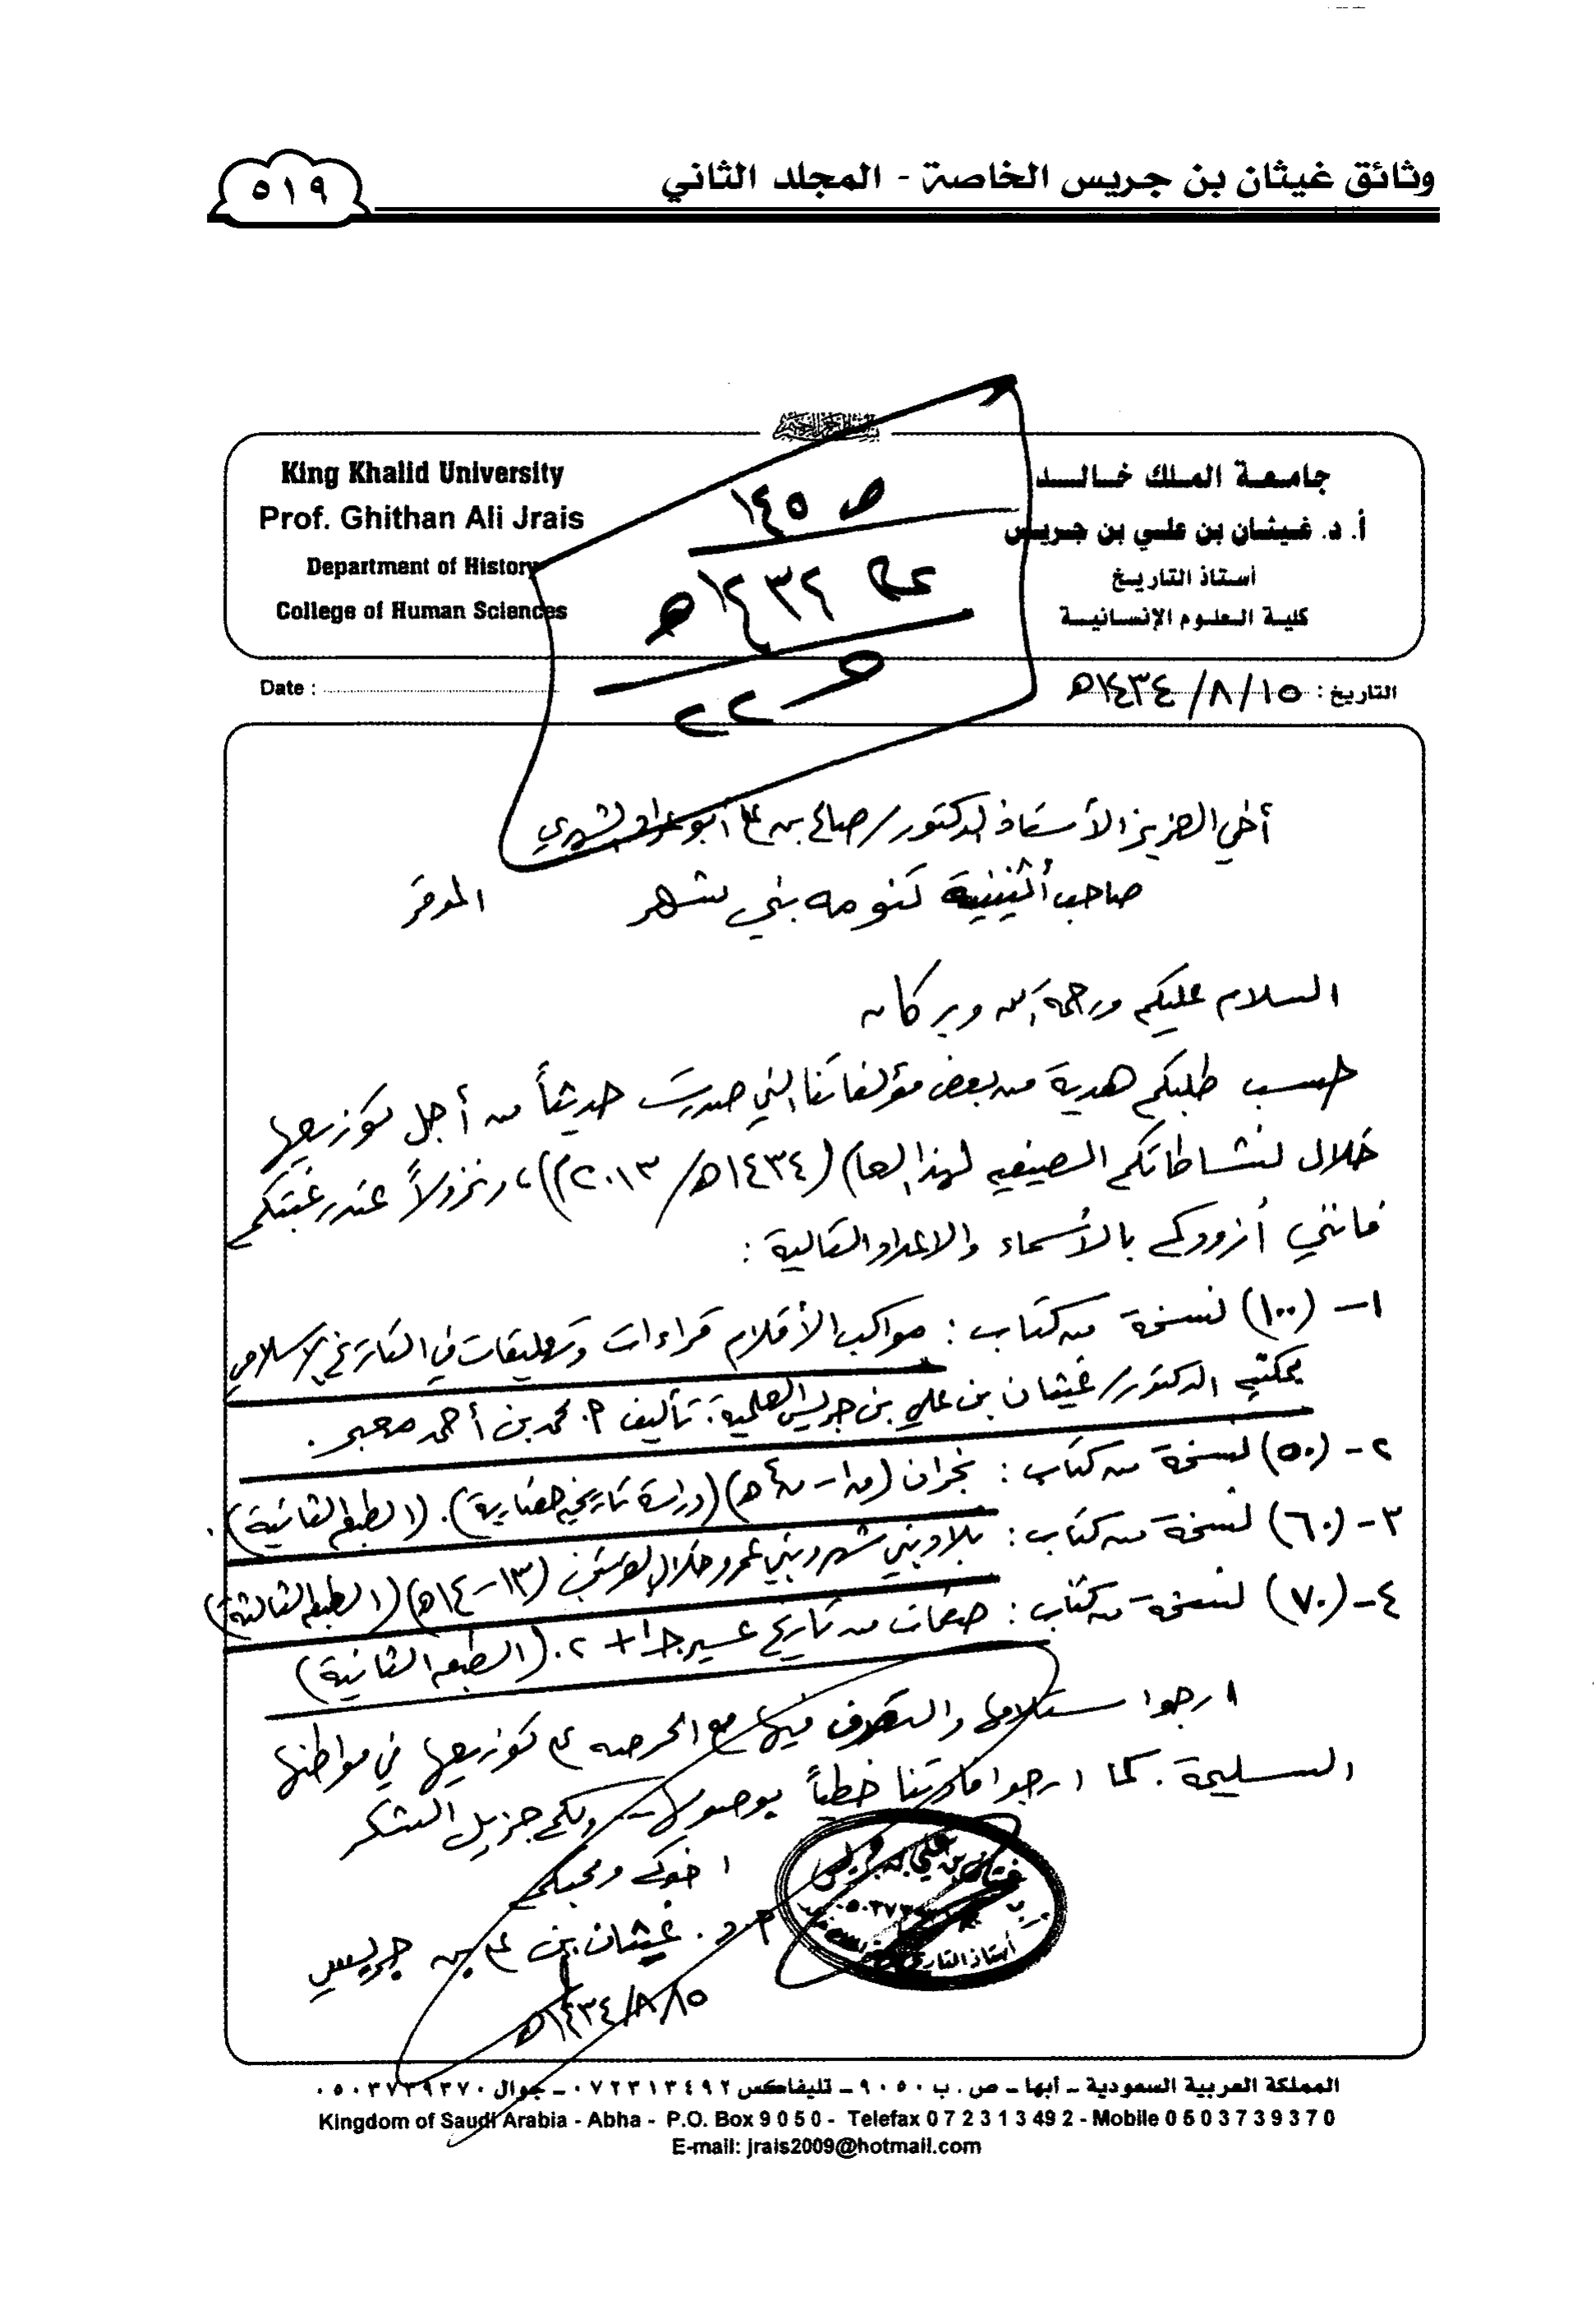 وثائق غيثان بن جريس الخاصة - المجلد الثاني
٥١٩
جامعة الملك خالد
أ. د. غيثان بن علي بن جريس
أستاذ التاريخ
كلية العلوم الإنسانية
King Khalid University
Prof. Ghithan Ali Jrais
Department of History
College of Human Sciences
ص ١٤٥
١٤٣٢هـ
٢٢
التاريخ : ١٥/٨/١٤٣٤هـ
Date :
أخي العزيز الأستاذ الدكتور/ صالح بن علي أبو عراد الشهري
صاحب أثنينية تنومة بني شهر الموقر
السلام عليكم ورحمة الله وبركاته
حسب طلبكم هدية من بعض مؤلفاتنا التي صدرت حديثاً من أجل توزيعها
خلال نشاطاتكم الصيفية لهذا العام (١٤٣٤هـ/٢٠١٣م)، ونزولاً عند رغبتكم
فإنني أزودكم بالأسماء والاعداد التالية :
١- (١٠٠) نسخة من كتاب : مواكب الأقلام قراءات وتعليقات في التاريخ الإسلامي
بمكتبة الدكتور/ غيثان بن علي بن جريس العلمية. تأليف م. محمد بن أحمد معبر.
٢- (٥٠) نسخة من كتاب : نجران (دراسة تاريخية حضارية). (الطبعة الثانية).
٣- (٦٠) نسخة من كتاب : بلاد بني شهر وبني عمرو خلال القرنين (١٣-١٤هـ) (الطبعة الثالثة)
٤- (٧٠) نسخة من كتاب : صفحات من تاريخ عسير جـ١+٢. (الطبعة الثانية)
ارجوا ستلامها والتصرف فيها مع الحرص على توزيعها في مواطنها
السليمة. كما ارجوا افادتنا خطياً بوصولها ولكم جزيل الشكر
اخوكم ومحبكم
أ. د. غيثان بن علي بن جريس
١٥/٨/١٤٣٤هـ
غيثان بن علي بن جريس
أستاذ التاريخ
المملكة العربية السعودية ـ أبها ـ ص. ب ٩٠٥٠ ـ تليفاكس ٠٧٢٣١٣٤٩٢ ـ جوال ٠٥٠٣٧٣٩٣٧٠
Kingdom of Saudi Arabia - Abha - P.O. Box 9 0 5 0 - Telefax 0 7 2 3 1 3 49 2 - Mobile 0 5 0 3 7 3 9 3 7 0
E-mail: jrais2009@hotmail.com